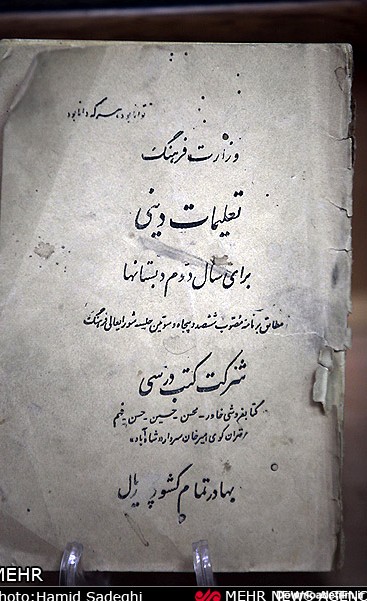 توانا بود هر که دانا بود
وزارت فرهنگ
تعلیمات دینی
برای سال دوم دبستانها
مطابق برنامه مصوب ششصد و پنجاه و سومین جلسه شورایعالی فرهنگ
شرکت کتب درسی
کتابفروشی خاور - محسن - حسین - حسن - فهم
تهران کوی امیرخان سردار «شاه‌آباد»
بها در تمام کشور ریال
MEHR
Photo: Hamid Sadeghi
MEHR NEWS AGENCY